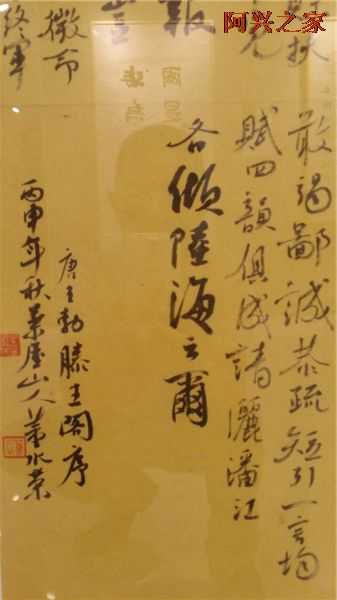 阿兴之家
敢竭鄙誠恭疏短引一言均
賦四韻俱成請灑潘江
各傾陸海云爾
微命
終軍
唐王勃滕王閣序
丙申年秋
山人董水荣